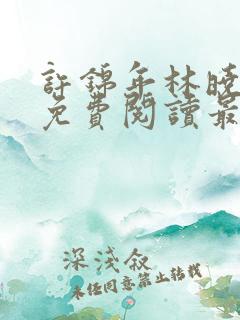 許錦年林曉
免費閱讀最
深淺敘
未經同意禁止轉載